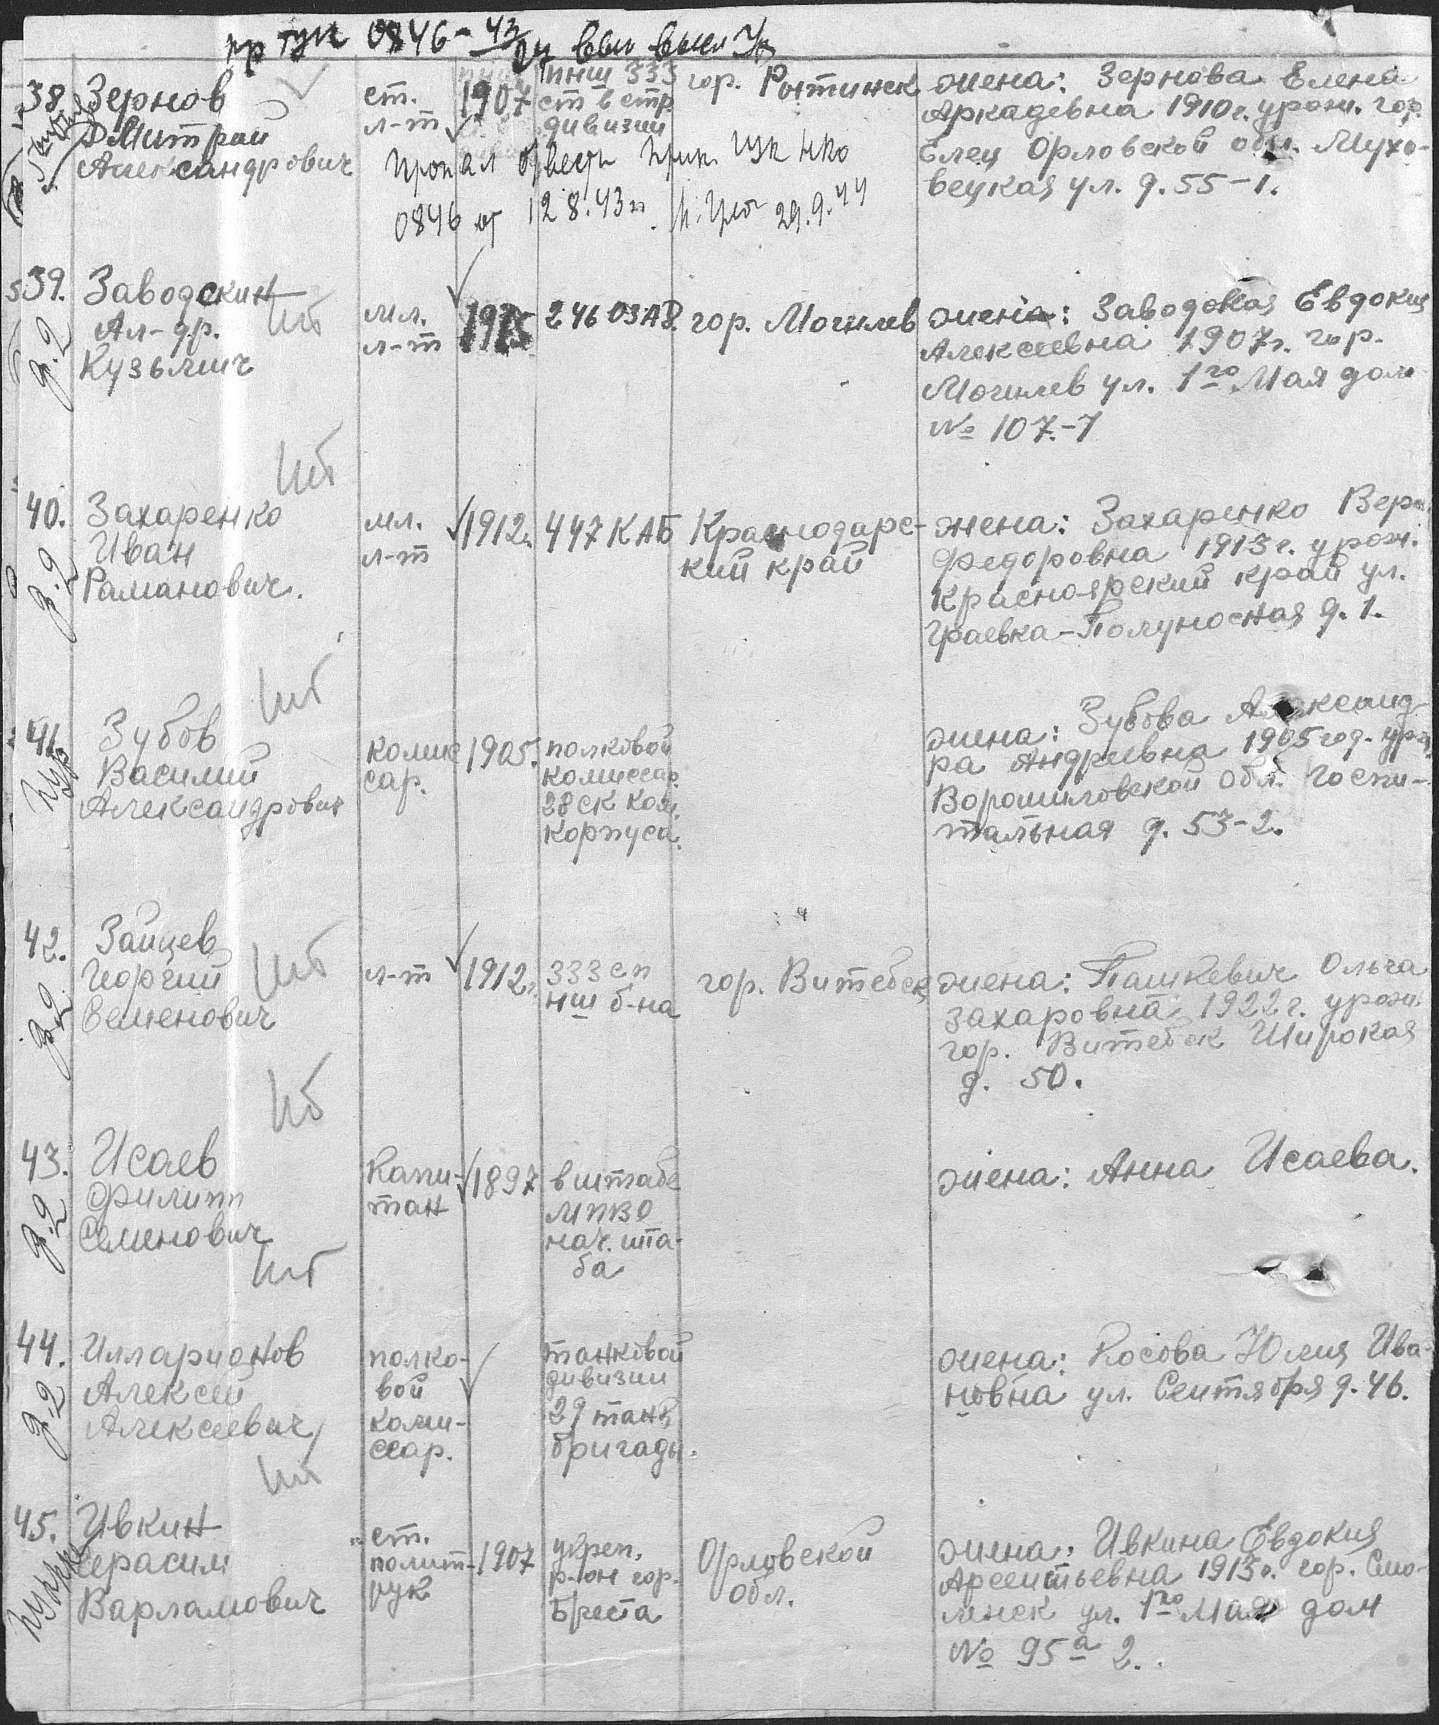 0846-43
38. Зернов
Дмитрий
Александрович
ст.
л-т
1907
пнш 333
ст в стр
дивизии
гор.
жена: Зернова Елена
Аркадевна 1910г. урож. гор.
Елец Орловской обл. Мухо-
вецкая ул. д. 55-1.
Пропал б/вести Прик. ГУК НКО
0846 от 12 8.43г. 29.9.44
39. Заводскин
Ал-др.
Кузьмич
мл.
л-т
1915
246 ОЗАД
гор. Могилев
жена: Заводская Евдокия
Алексеевна 1907г. гор.
Могилев ул. 1го Мая дом
№ 107.-1
40. Захаренко
Иван
Раманович.
мл.
л-т
1912г.
447 КАП
Краснодарс-
кий край
жена: Захаренко Вера
Федоровна 1913г. урож.
Красноярский край ул.
Граевка-Полуносная д. 1.
41. Зубов
Василий
Александрович
комис
сар.
1905.
полковой
комиссар
28 ск ком.
корпуса.
жена: Зубова Александ-
ра Андреевна 1905год. урож.
Ворошиловской обл. Госпи-
тальная д. 53-2.
42. Зайцев
Георгий
Семенович
л-т
1912г.
333 сп
нш б-на
гор. Витебск
жена: Пашкевич Ольга
Захаровна 1922г. урож.
гор. Витебск Широкая
д. 50.
43. Исаев
Филипп
Семенович
Капи-
тан
1897
в штабе
МПВО
нач. шта-
ба
жена: Анна Исаева.
44. Илларионов
Алексей
Алексеевич
полко-
вой
коми-
ссар.
танковой
дивизии
29 танк
бригады.
жена: Косова Юлия Ива-
новна ул. Сентября д. 46.
45. Ивкин
Герасим
Варламович
ст.
полит-
рук
1907
укреп.
р-он гор.
Бреста
Орловской
обл.
жена: Ивкина Евдокия
Арсентьевна 1913г. гор. Смо-
ленск ул. 1го Мая дом
№ 95а 2.